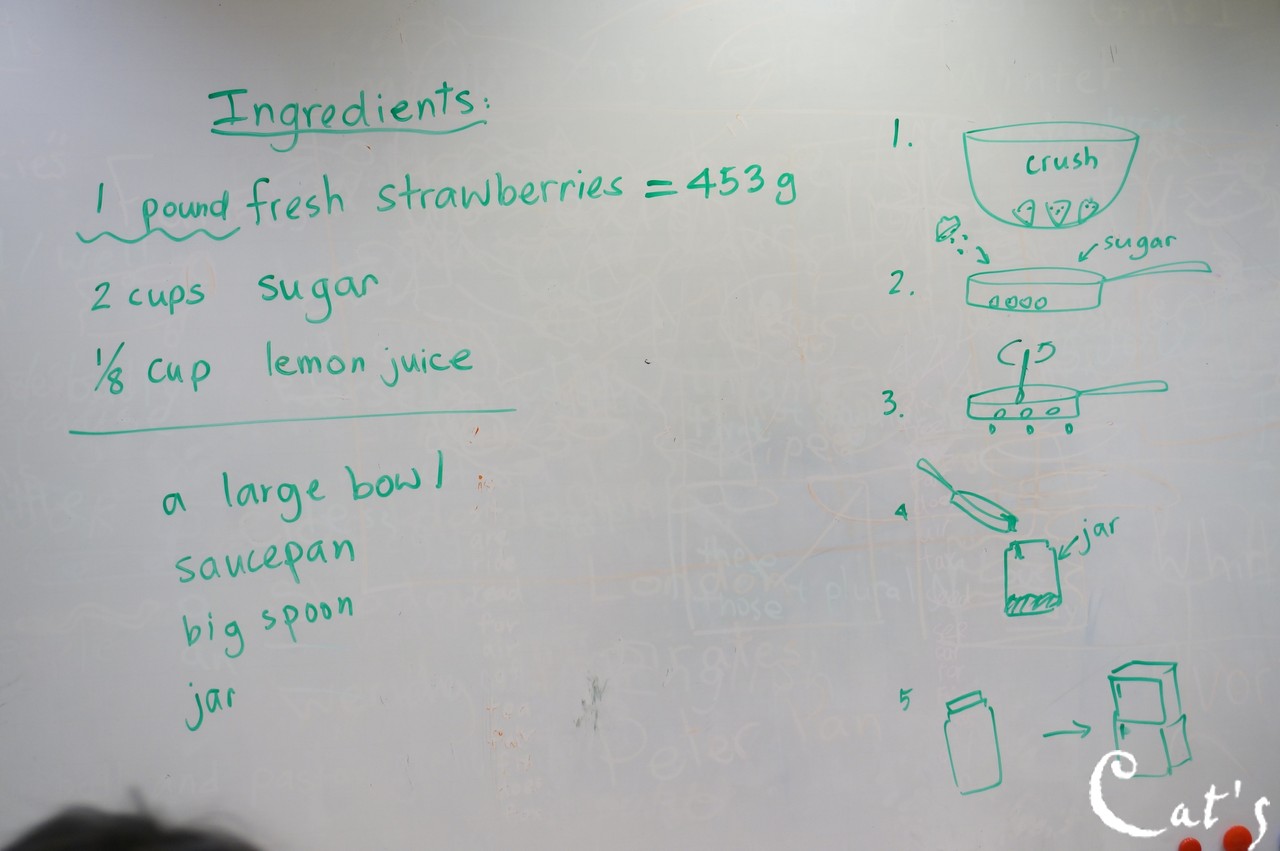 Ingredients:
1 pound fresh strawberries = 453 g
2 cups sugar
1/8 cup lemon juice
a large bowl
saucepan
big spoon
jar
1.
crush
2.
sugar
3.
4
jar
5
Peter Pan
Cat's